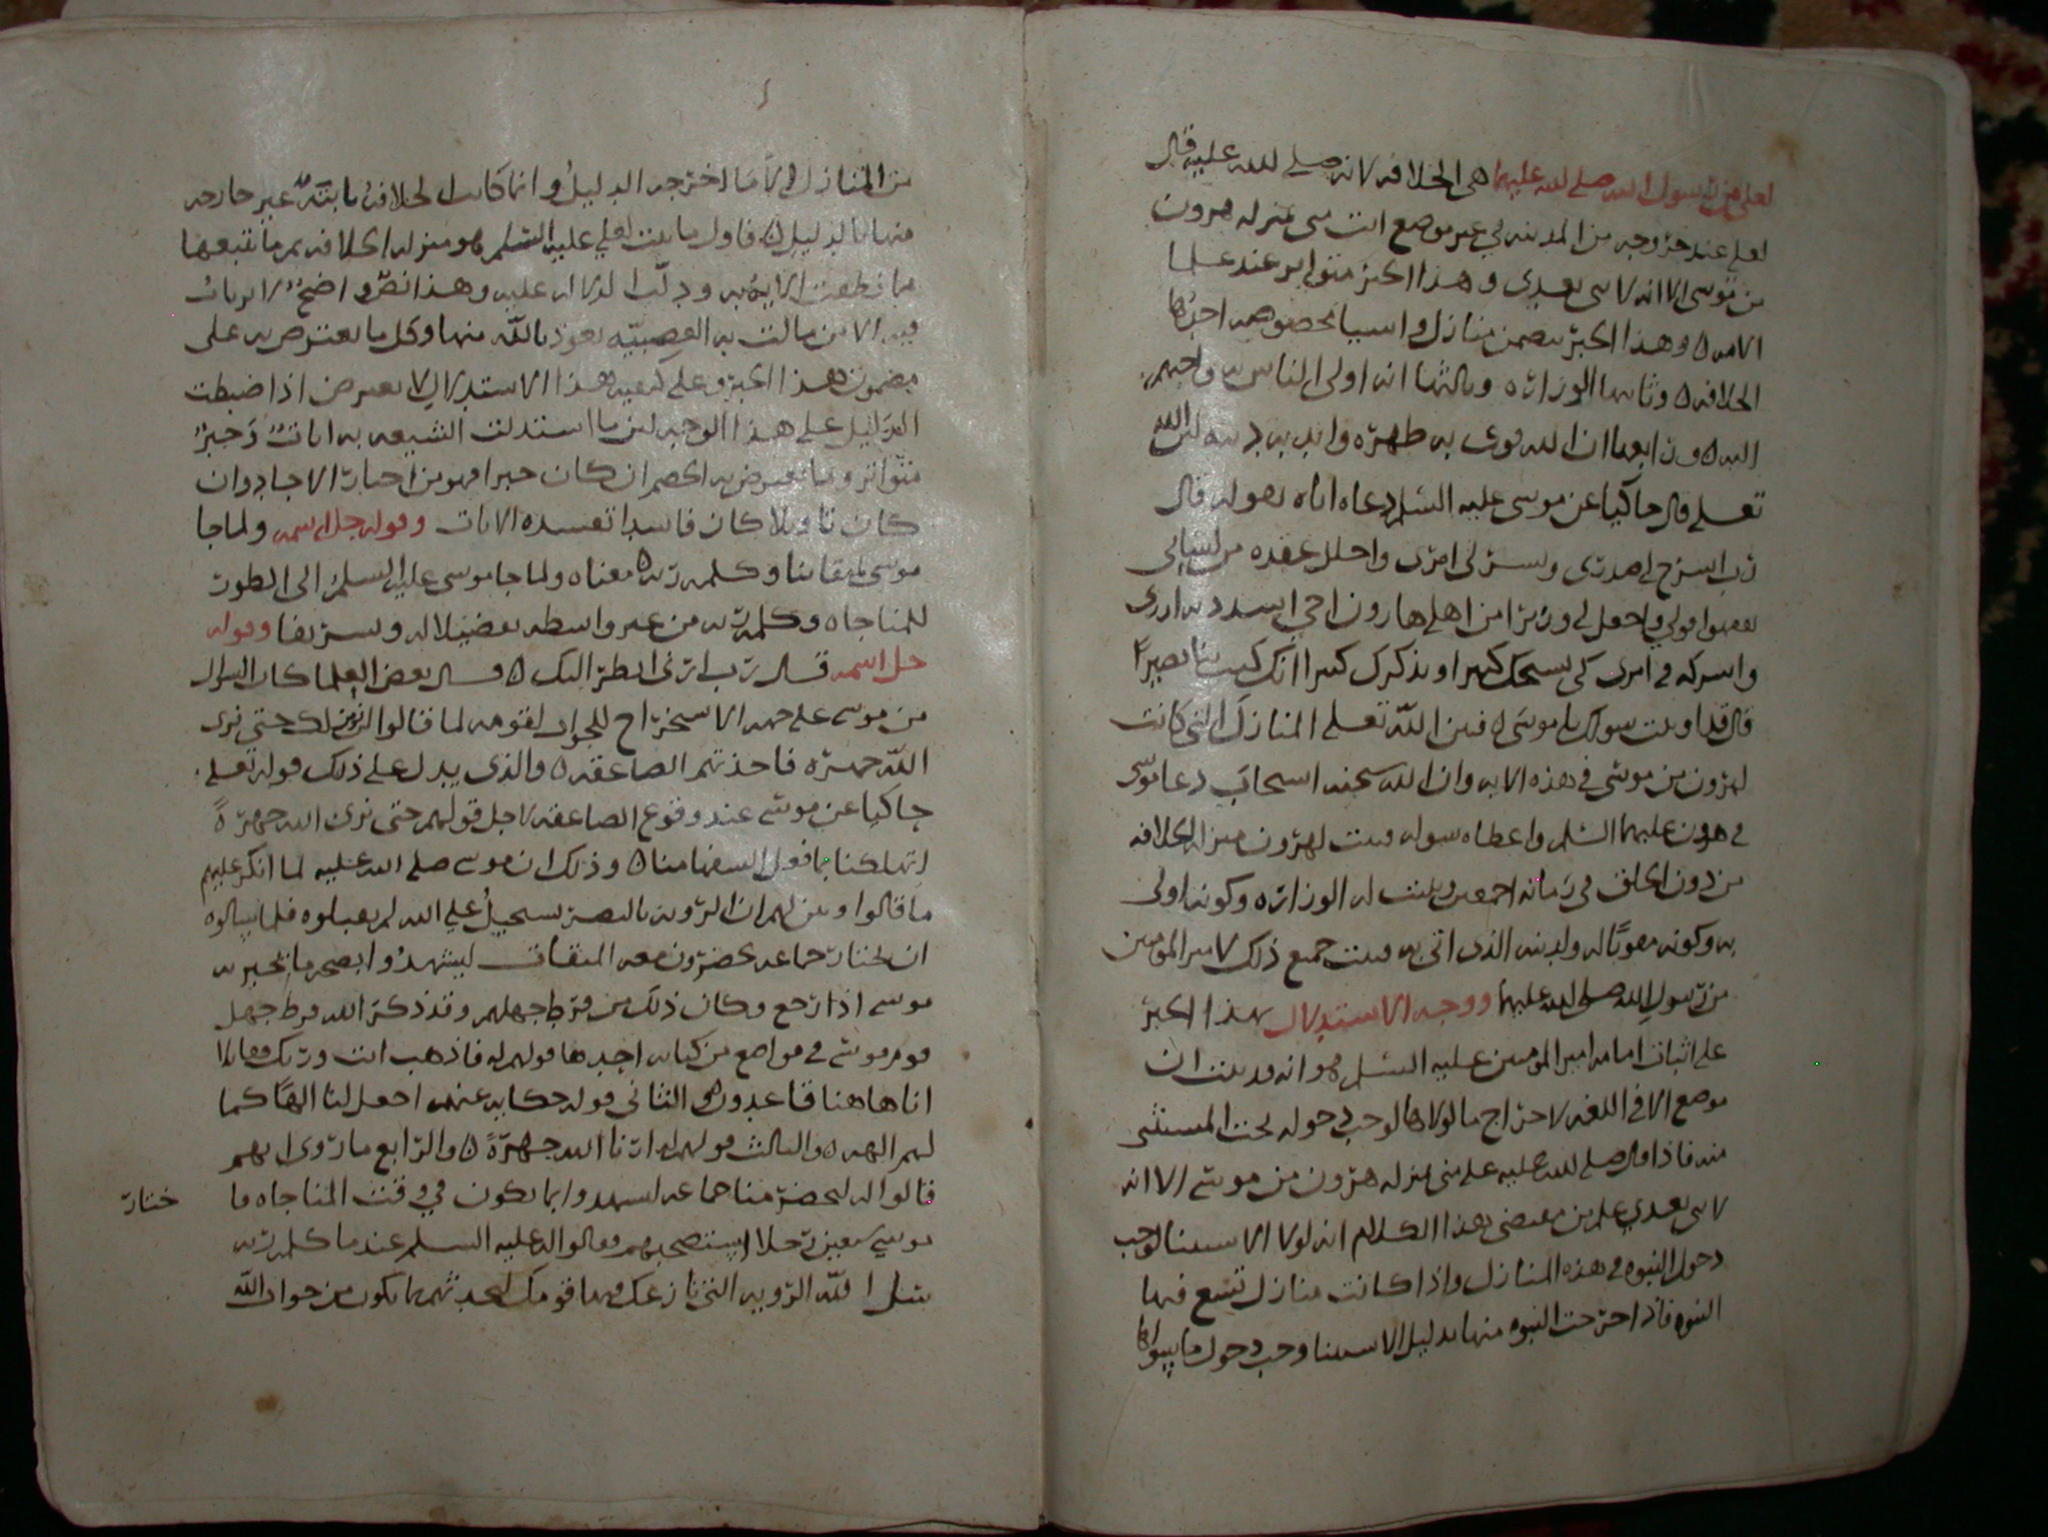 لعلي من رسول الله صلى الله عليهما هي الخلافه لانه صلى الله عليه قال
لعلي عند خروجه من المدينه في غير موضع انت مني بمنزله هرون
من موسى الا انه لا نبي بعدي وهذا الخبر متواتر عند علما
الامه ٥ وهذا الخبر يتضمن منازل واسبابا مخصوصه احدها
الخلافه ٥ وثانيها الوزاره وثالثها انه اولى الناس به واحبهم
اليه ٥ ورابعها ان الله قوى به ظهره وايد به دينه لان الله
تعلى قال حاكيا عن موسى عليه السلم دعاه اياه بقوله قال
رب اشرح لي صدري ويسر لي امري واحلل عقده من لساني
يفقهوا قولي واجعل لي وزيرا من اهلي هارون اخي اشدد به ازري
واشركه في امري كي نسبحك كثيرا ونذكرك كثيرا انك كنت بنا بصيرا
قال قد اوتيت سولك يا موسى ٥ فبين الله تعلى المنازل التي كانت
لهرون من موسى في هذه الايه وان الله سبحنه استجاب دعا موسى
في هرون عليهما السلم واعطاه سوله فثبت لهرون منزله الخلافه
من دون الخلق في زمانه اجمعين وثبت له الوزاره وكونه اولى
به وكونه مقويا له ولدينه الذي اتى به فثبت جميع ذلك لامير المومنين
من رسول الله صلى الله عليهما ووجه الاستدلال بهذا الخبر
على اثبات امامه امير المومنين عليه السلم هو انه قد ثبت ان
موضع الا في اللغه لاخراج ما لولاها لوجب دخوله تحت المستثنى
منه فاذا قال صلى الله عليه علي مني بمنزله هرون من موسى الا انه
لا نبي بعدي علم من مقتضى هذا الكلام انه لولا الاستثنا لوجب
دخول النبوه في هذه المنازل واذا كانت منازل تتبع فيها
النبوه فاذا خرجت النبوه منها بدليل الاستثنا وجب دخول ما سواها
من المنازل الا ما اخرجه الدليل وانما كانت الخلافه ثابته غير خارجه
منها بالدليل ٥ فاول ما يثبت لعلي عليه السلم هو منزله الخلافه ثم ما تتبعها
مما نطقت الايه به ودلت الدلاله عليه وهذا نص واضح لا يرتاب
فيه الا من مالت به العصبيه نعوذ بالله منها وكل ما يعترض به على
مضمون هذا الخبر وعلى كيفيه هذا الاستدلال لا يعترض اذا ضبطت
الدليل على هذا الوجه لان ما استدلت الشيعه به ايات وخبر
متواتر وما يعترض به الخصم ان كان خبرا فهو من اخبار الاحاد وان
كان تاويلا كان فاسدا تفسده الايات وقوله جل اسمه ولما جا
موسى لميقاتنا وكلمه ربه ٥ معناه ولما جا موسى عليه السلم الى الطور
للمناجاه وكلمه ربه من غير واسطه تفضيلا له وتشريفا وقوله
جل اسمه قال رب ارني انظر اليك ٥ قال بعض العلما كان السوال
من موسى على جهه الاستخراج للجواب لقومه لما قالوا لن نومن لك حتى نرى
الله جهره فاخذتهم الصاعقه ٥ والذي يدل على ذلك قوله تعلى
حاكيا عن موسى عند وقوع الصاعقه لاجل قولهم حتى نرى الله جهرة
اتهلكنا بما فعل السفها منا ٥ وذلك ان موسى صلى الله عليه لما انكر عليهم
ما قالوا وبين لهم ان الرويه بالبصر تستحيل على الله لم يقبلوه فلما سالوه
ان يختار جماعه يحضرون معه الميقات ليشهدوا بصحه ما يخبر به
موسى اذا رجع وكان ذلك من فرط جهلهم وقد ذكر الله فرط جهل
قوم موسى في مواضع من كتابه احدها قولهم له فاذهب انت وربك فقاتلا
انا هاهنا قاعدون ٥ والثاني قوله حكايه عنهم اجعل لنا الها كما
لهم الهه ٥ والثالث قولهم ارنا الله جهرة ٥ والرابع ما روي انهم
قالوا له ليحضر منا جماعه ليشهدوا بما يكون في وقت المناجاه فا
ختار
موسى سبعين رجلا يستصحبهم وقالوا له عليه السلم عندما كلمه ربه
سل الله الرويه التي نازعك فيها قومك لتحدثهم بما يكون من جواب الله